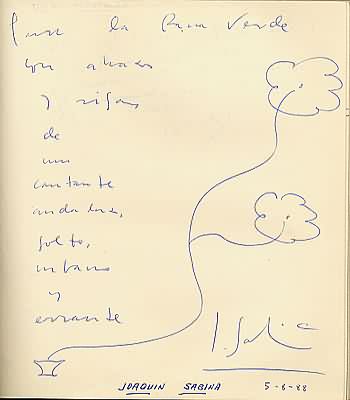 Para la Rana Verde
con abrazos
y risas
de
un
cantante
andaluz,
golfo,
urbano
y
errante
J. Sabina
JOAQUIN SABINA 5-8-88